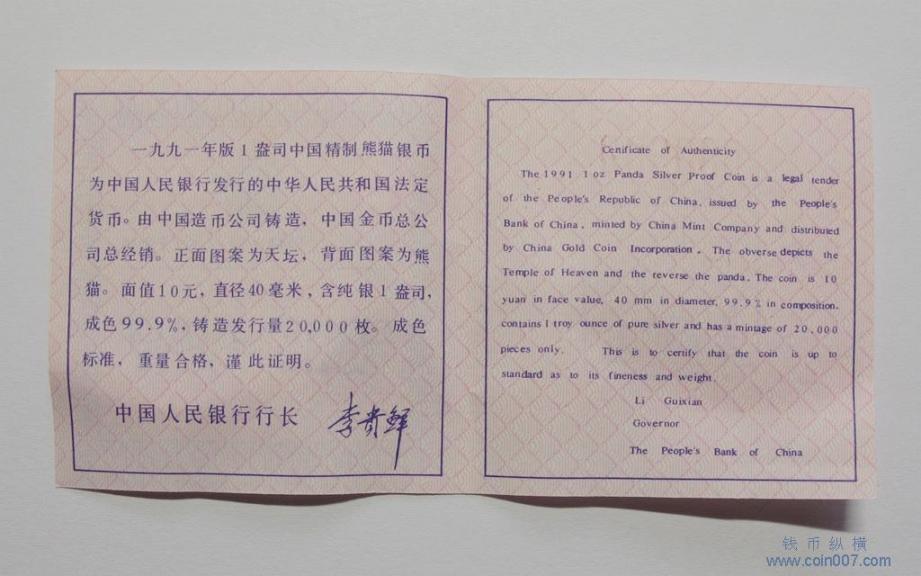 一九九一年版1盎司中国精制熊猫银币
为中国人民银行发行的中华人民共和国法定
货币。由中国造币公司铸造，中国金币总公
司总经销。正面图案为天坛，背面图案为熊
猫。面值10元，直径40毫米，含纯银1盎司，
成色99.9%，铸造发行量20,000枚。成色
标准，重量合格，谨此证明。
中国人民银行行长 李贵鲜
Certificate of Authenticity
The 1991 1 oz Panda Silver Proof Coin is a legal tender
of the People's Republic of China, issued by the People's
Bank of China, minted by China Mint Company and distributed
by China Gold Coin Incorporation. The obverse depicts the
Temple of Heaven and the reverse the panda. The coin is 10
yuan in face value, 40 mm in diameter, 99.9% in composition,
contains 1 troy ounce of pure silver and has a mintage of 20,000
pieces only. This is to certify that the coin is up to
standard as to its fineness and weight.
Li Guixian
Governor
The People's Bank of China
钱币纵横
www.coin007.com